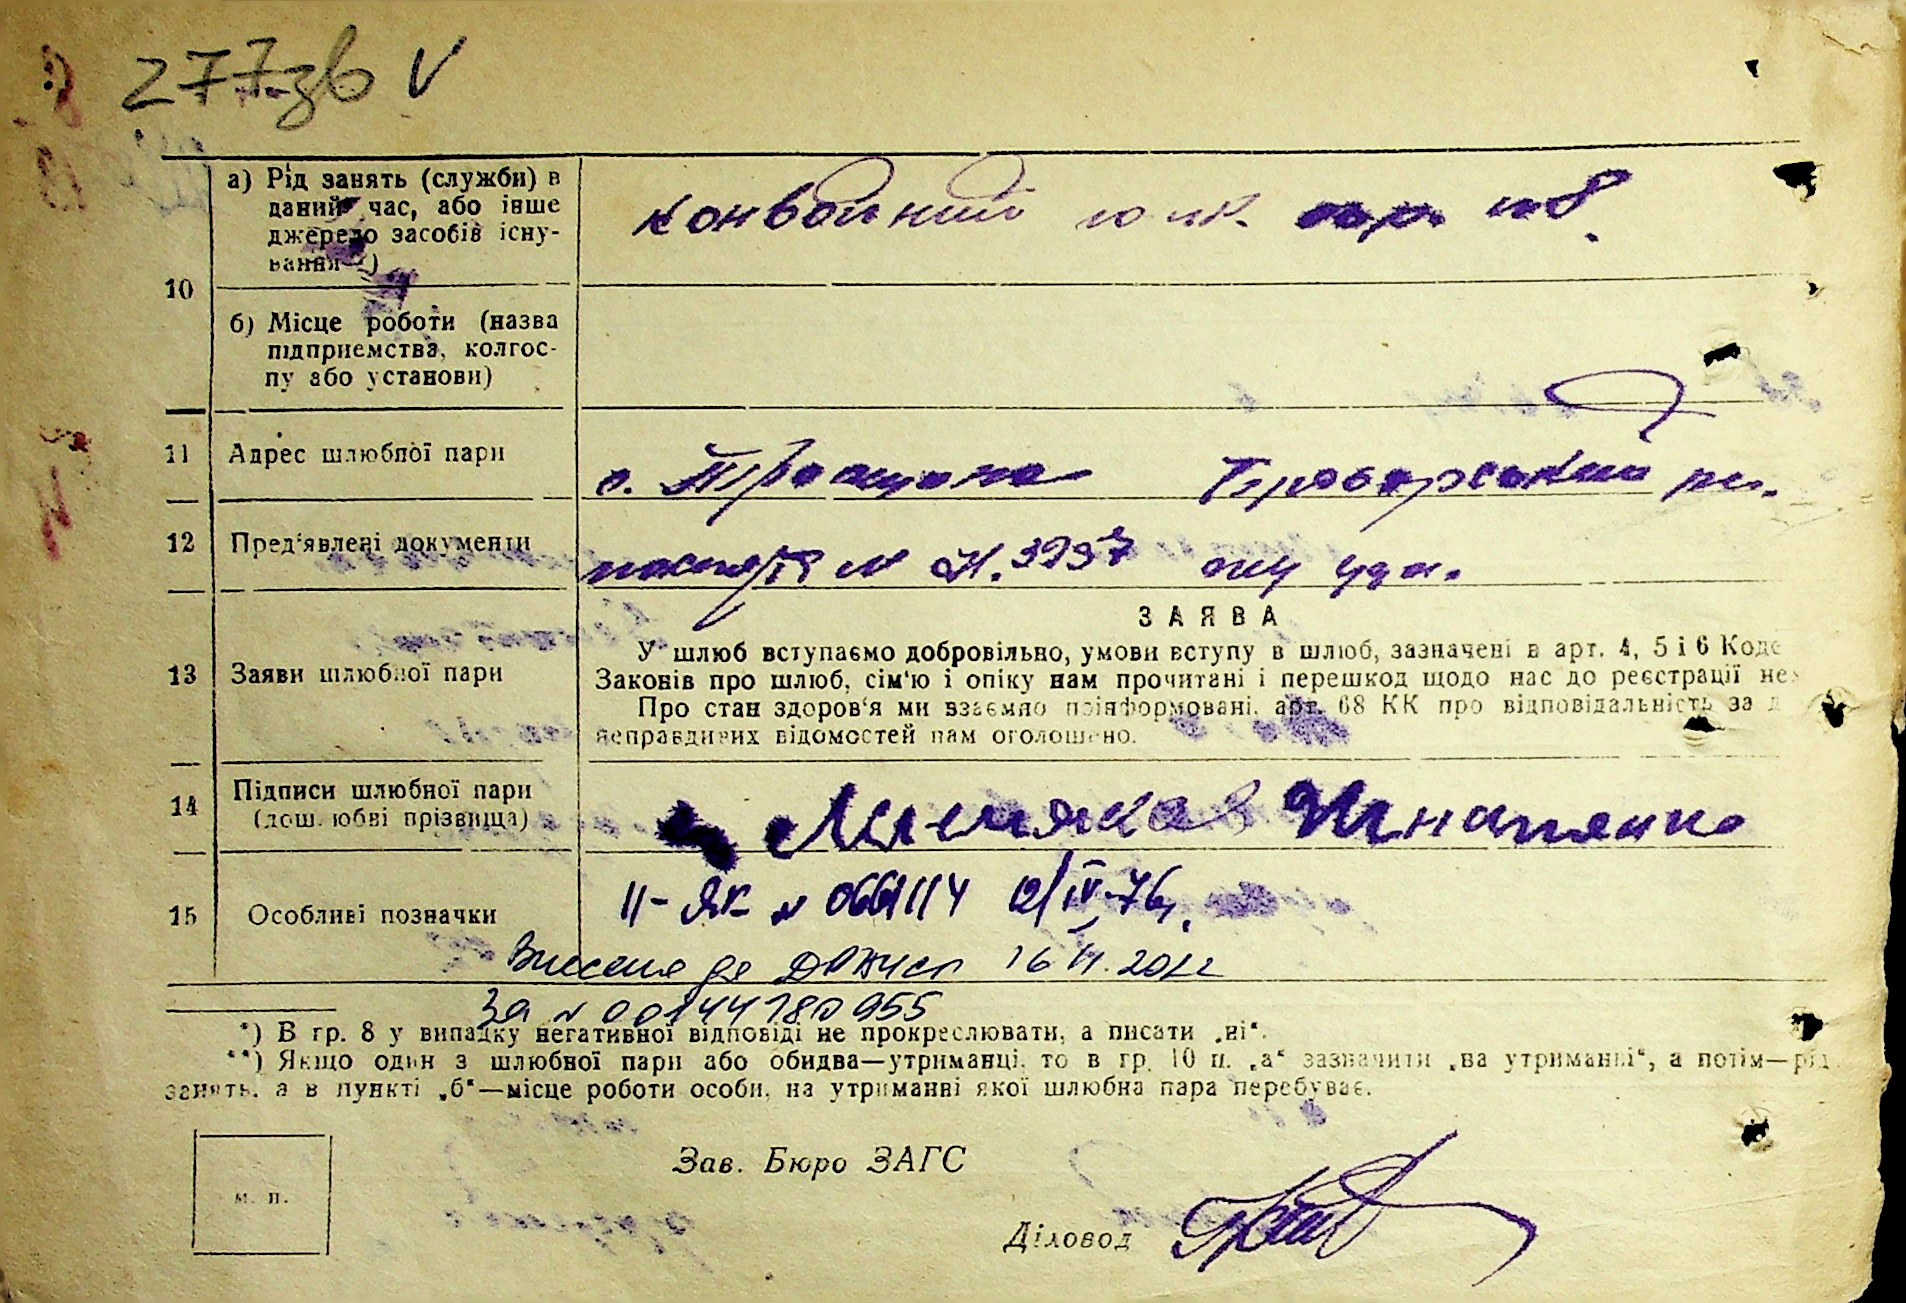 277зв V
а) Рід занять (служби) в
даний час, або інше
джерело засобів існу-
вання **)
конвойний
10
б) Місце роботи (назва
підприємства, колгос-
пу або установи)
11 Адрес шлюбної пари
с. Требухів Броварський рн.
12 Пред'явлені документи
паспорт № 3957
ЗАЯВА
13 Заяви шлюбної пари
У шлюб вступаємо добровільно, умови вступу в шлюб, зазначені в арт. 4, 5 і 6 Коде
Законів про шлюб, сім'ю і опіку нам прочитані і перешкод щодо нас до реєстрації не
Про стан здоров'я ми взаємно поінформовані. арт. 68 КК про відповідальність за д
неправдивих відомостей нам оголошено.
14 Підписи шлюбної пари
(дошлюбні прізвища)
15 Особливі позначки
II-ЯК № 066114 12/IV-76
Внесено до ДРАЦС 16 VI. 2012
За № 00144780955
*) В гр. 8 у випадку негативної відповіді не прокреслювати, а писати „ні“.
**) Якщо один з шлюбної пари або обидва—утриманці, то в гр. 10 п. „а“ зазначити „на утриманні“, а потім—рід
занять, а в пункті „б“—місце роботи особи, на утриманні якої шлюбна пара перебуває.
м. п.
Зав. Бюро ЗАГС
Діловод